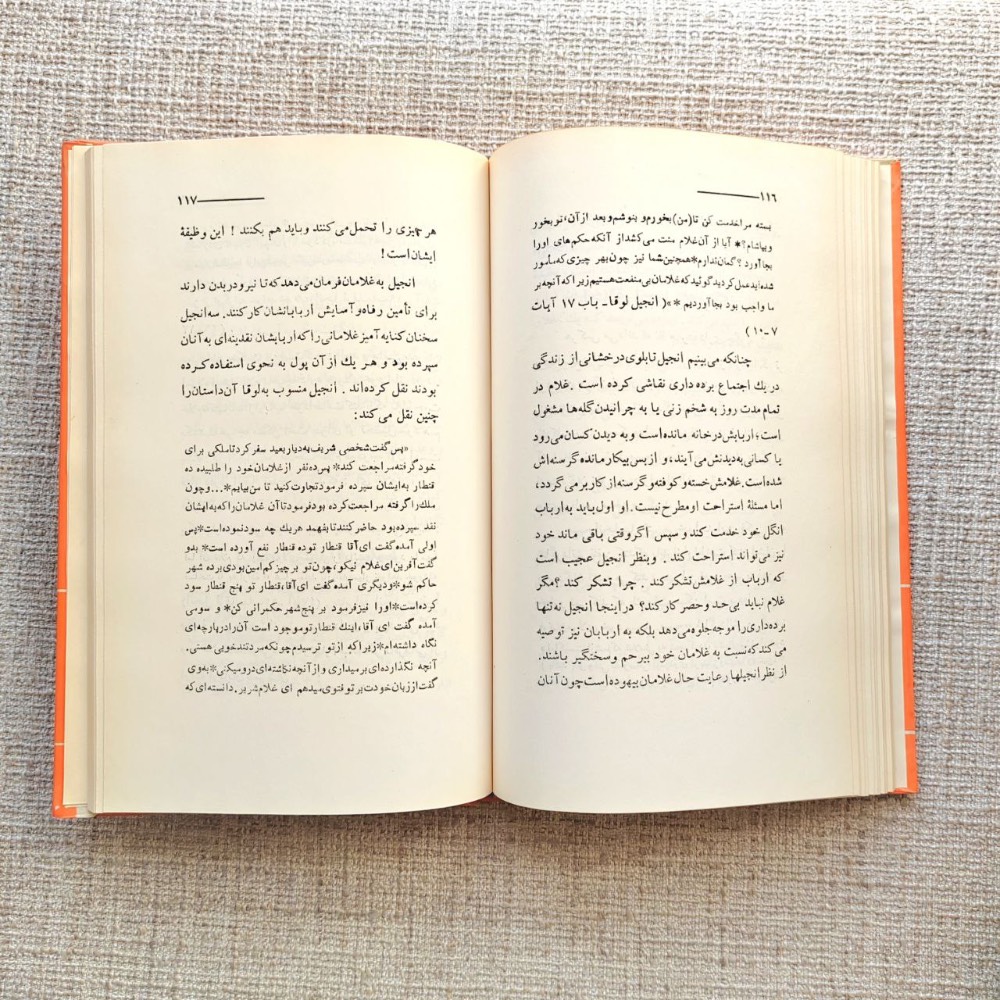 ۱۱۶
بسته مرا خدمت کن تا (من) بخورم و بنوشم و بعد از آن، تو بخور
و بیاشام؟* آیا از آن غلام منت می‌کشد از آنکه حکم‌های او را
بجا آورد؟ گمان ندارم* همچنین شما نیز چون بهر چیزی که مأمور
شده‌اید عمل کردید گوئید که غلامان بی منفعت هستیم زیرا که آنچه بر
ما واجب بود بجا آوردیم *»( انجیل لوقا- باب ۱۷ آیات
۷-۱۰)
چنانکه می‌بینیم انجیل تابلوی درخشانی از زندگی
در یك اجتماع برده داری نقاشی کرده است. غلام در
تمام مدت روز به شخم زنی یا به چرانیدن گله‌ها مشغول
است؛ اربابش در خانه مانده است و به دیدن کسان می‌رود
یا کسانی به دیدنش می‌آیند، و از بس بیکار مانده گرسنه‌اش
شده است. غلامش خسته و کوفته و گرسنه از کار بر می‌گردد،
اما مسئلۀ استراحت او مطرح نیست. او اول باید به ارباب
انگل خود خدمت کند و سپس اگر وقتی باقی ماند خود
نیز می‌تواند استراحت کند. و بنظر انجیل عجیب است
که ارباب از غلامش تشکر کند. چرا تشکر کند؟ مگر
غلام نباید بی‌حد و حصر کار کند؟ در اینجا انجیل نه تنها
برده‌داری را موجه جلوه می‌دهد بلکه به اربابان نیز توصیه
می‌کند که نسبت به غلامان خود بیرحم و سختگیر باشند.
از نظر انجیلها رعایت حال غلامان بیهوده است چون آنان
۱۱۷
هر چیزی را تحمل می‌کنند و باید هم بکنند! این وظیفۀ
ایشان است!
انجیل به غلامان فرمان می‌دهد که تا نیرو در بدن دارند
برای تأمین رفاه و آسایش اربابانشان کار کنند. سه انجیل
سخنان کنایه آمیز غلامانی را که اربابشان نقدینه‌ای به آنان
سپرده بود و هر یك از آن پول به نحوی استفاده کرده
بودند نقل کرده‌اند. انجیل منسوب به لوقا آن داستان را
چنین نقل می‌کند:
«پس گفت شخصی شریف به دیار بعید سفر کرد تا ملکی برای
خود گرفته مراجعت کند* پس ده نفر از غلامان خود را طلبیده ده
قنطار به ایشان سپرده فرمود تجارت کنید تا من بیایم*...و چون
ملك را گرفته مراجعت کرده بود فرمود تا آن غلامان را که به ایشان
نقد سپرده بود حاضر کنند تا بفهمد هر یك چه سود نموده است* پس
اولی آمده گفت ای آقا قنطار تو ده قنطار نفع آورده است* بدو
گفت آفرین ای غلام نیکو، چون تو بر چیز کم امین بودی بر ده شهر
حاکم شو* و دیگری آمده گفت ای آقا، قنطار تو پنج قنطار سود
کرده است* او را نیز فرمود بر پنج شهر حکمرانی کن* و سومی
آمده گفت ای آقا، اینك قنطار تو موجود است آن را در پارچه‌ای
نگاه داشته‌ام* زیرا که از تو ترسیدم چونکه مرد تند خویی هستی.
آنچه نگذارده‌ای برمیداری و از آنچه نکاشته‌ای درو میکنی* به وی
گفت از زبان خودت بر تو فتوی میدهم ای غلام شریر. دانسته‌ای که